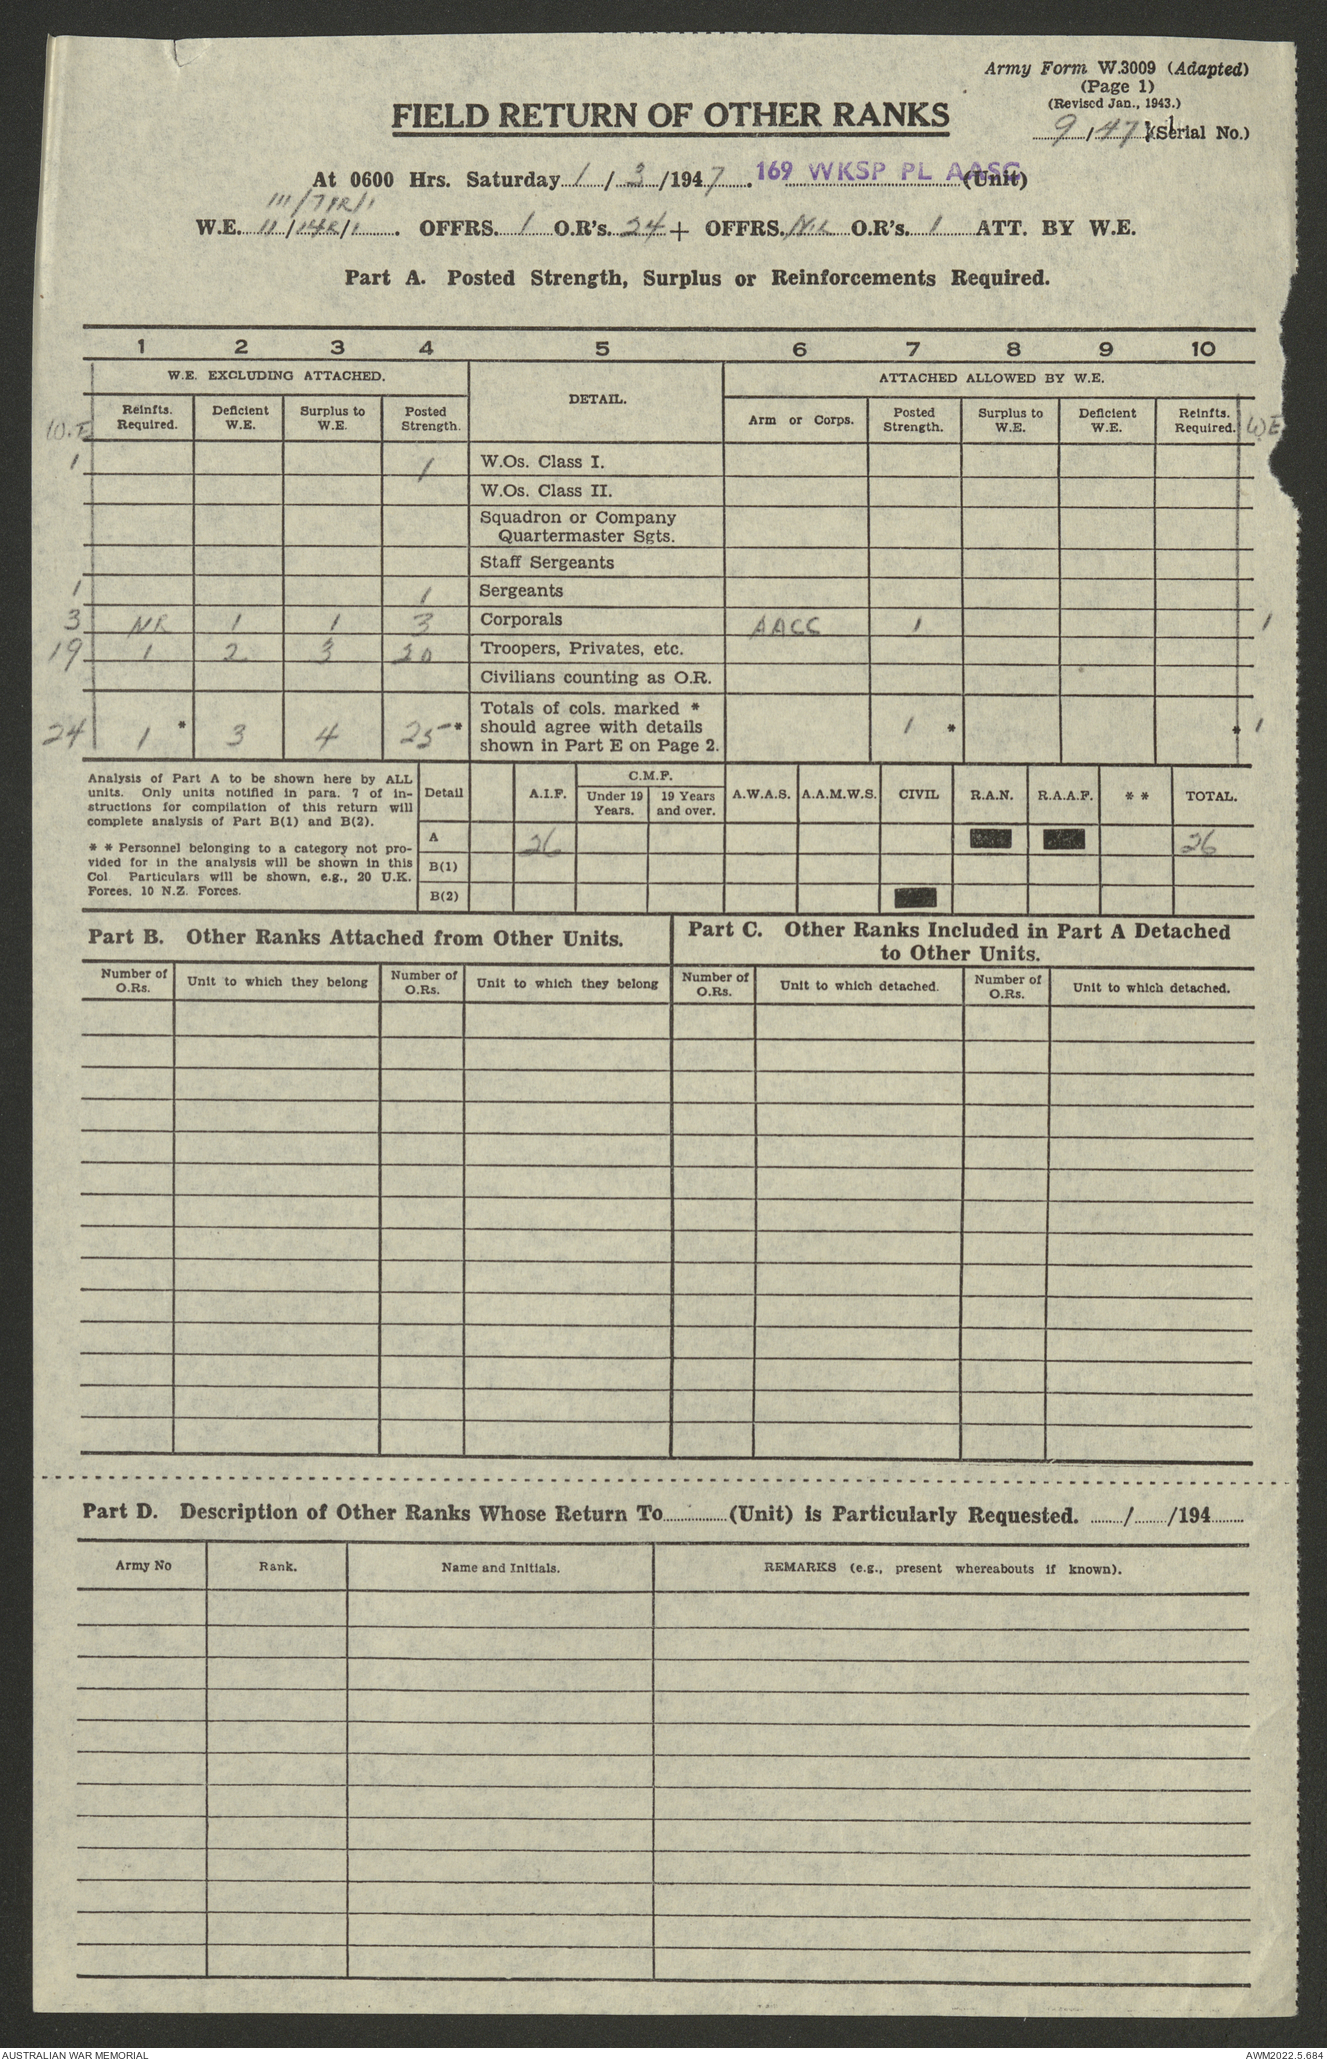 Army Form W.3009 (Adapted)
(Page 1)
(Revised Jan., 1943.)
FIELD RETURN OF OTHER RANKS
9/47 (Serial No.)
At 0600 Hrs. Saturday 1/3/1947. 169 WKSP PL AASC (Unit)
III/71R/1
W.E. II/14R/1. OFFRS. 1 O.R's. 24 + OFFRS. NIL O.R's. 1 ATT. BY W.E.
Part A. Posted Strength, Surplus or Reinforcements Required.
1 2 3 4 5 6 7 8 9 10
W.E. EXCLUDING ATTACHED. DETAIL. ATTACHED ALLOWED BY W.E.
W.E. Reinfts. Required. Deficient W.E. Surplus to W.E. Posted Strength. Arm or Corps. Posted Strength. Surplus to W.E. Deficient W.E. Reinfts. Required. WE
1 1 W.Os. Class I.
W.Os. Class II.
Squadron or Company
Quartermaster Sgts.
Staff Sergeants
1 1 Sergeants
3 NIL 1 1 3 Corporals AACC 1 1
19 1 2 3 20 Troopers, Privates, etc.
Civilians counting as O.R.
Totals of cols. marked *
should agree with details
24 1 * 3 4 25 * shown in Part E on Page 2. 1 * * 1
Analysis of Part A to be shown here by ALL
units. Only units notified in para. 7 of in-
structions for compilation of this return will
complete analysis of Part B(1) and B(2).
* * Personnel belonging to a category not pro-
vided for in the analysis will be shown in this
Col. Particulars will be shown, e.g., 20 U.K.
Forces, 10 N.Z. Forces.
C.M.F.
Detail A.I.F. Under 19 Years. 19 Years and over. A.W.A.S. A.A.M.W.S. CIVIL R.A.N. R.A.A.F. * * TOTAL.
A 26 26
B(1)
B(2)
Part B. Other Ranks Attached from Other Units.
Part C. Other Ranks Included in Part A Detached
to Other Units.
Number of O.Rs. Unit to which they belong Number of O.Rs. Unit to which they belong Number of O.Rs. Unit to which detached. Number of O.Rs. Unit to which detached.
Part D. Description of Other Ranks Whose Return To (Unit) is Particularly Requested. / /194
Army No Rank. Name and Initials. REMARKS (e.g., present whereabouts if known).
AUSTRALIAN WAR MEMORIAL
AWM2022.5.684